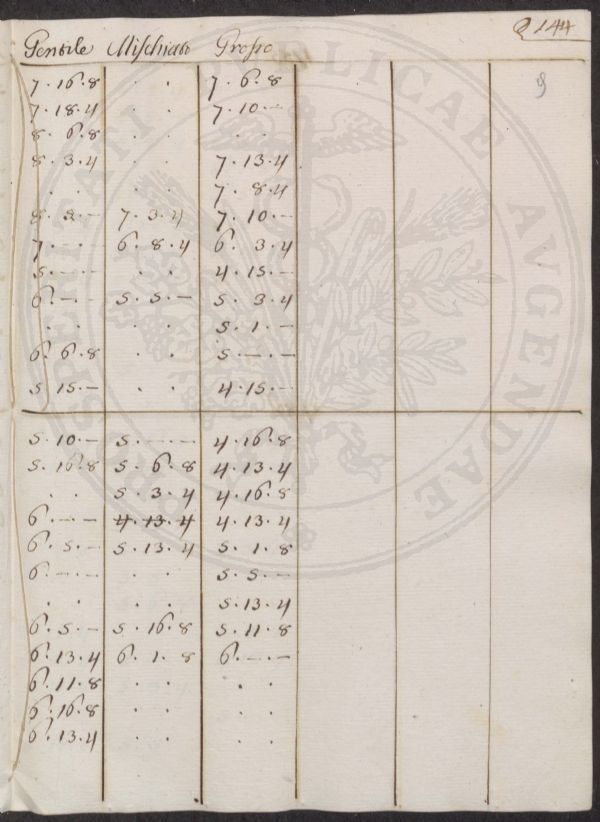 144
Gentile Mischiato Grosso
9
7.16.8 . . 7.6.8
7.18.4 . . 7.10.—
8.6.8 . . . .
8.3.4 . . 7.13.4
. . . . 7.8.4
8.2.— 7.3.4 7.10.—
7.—.— 6.8.4 6.3.4
5.—.— . . 4.15.—
6.—.— 5.5.— 5.3.4
. . . . 5.1.—
6.6.8 . . 5.—.—
5.15.— . . 4.15.—
5.10.— 5.—.— 4.16.8
5.16.8 5.6.8 4.13.4
. . 5.3.4 4.16.8
6.—.— 4.13.4 4.13.4
6.5.— 5.13.4 5.1.8
6.—.— . . 5.5.—
. . . . 5.13.4
6.5.— 5.16.8 5.11.8
6.13.4 6.1.8 6.—.—
6.11.8 . . . .
6.16.8 . . . .
6.13.4 . . . .
PROSPERITATI PUBLICAE AVGENDAE